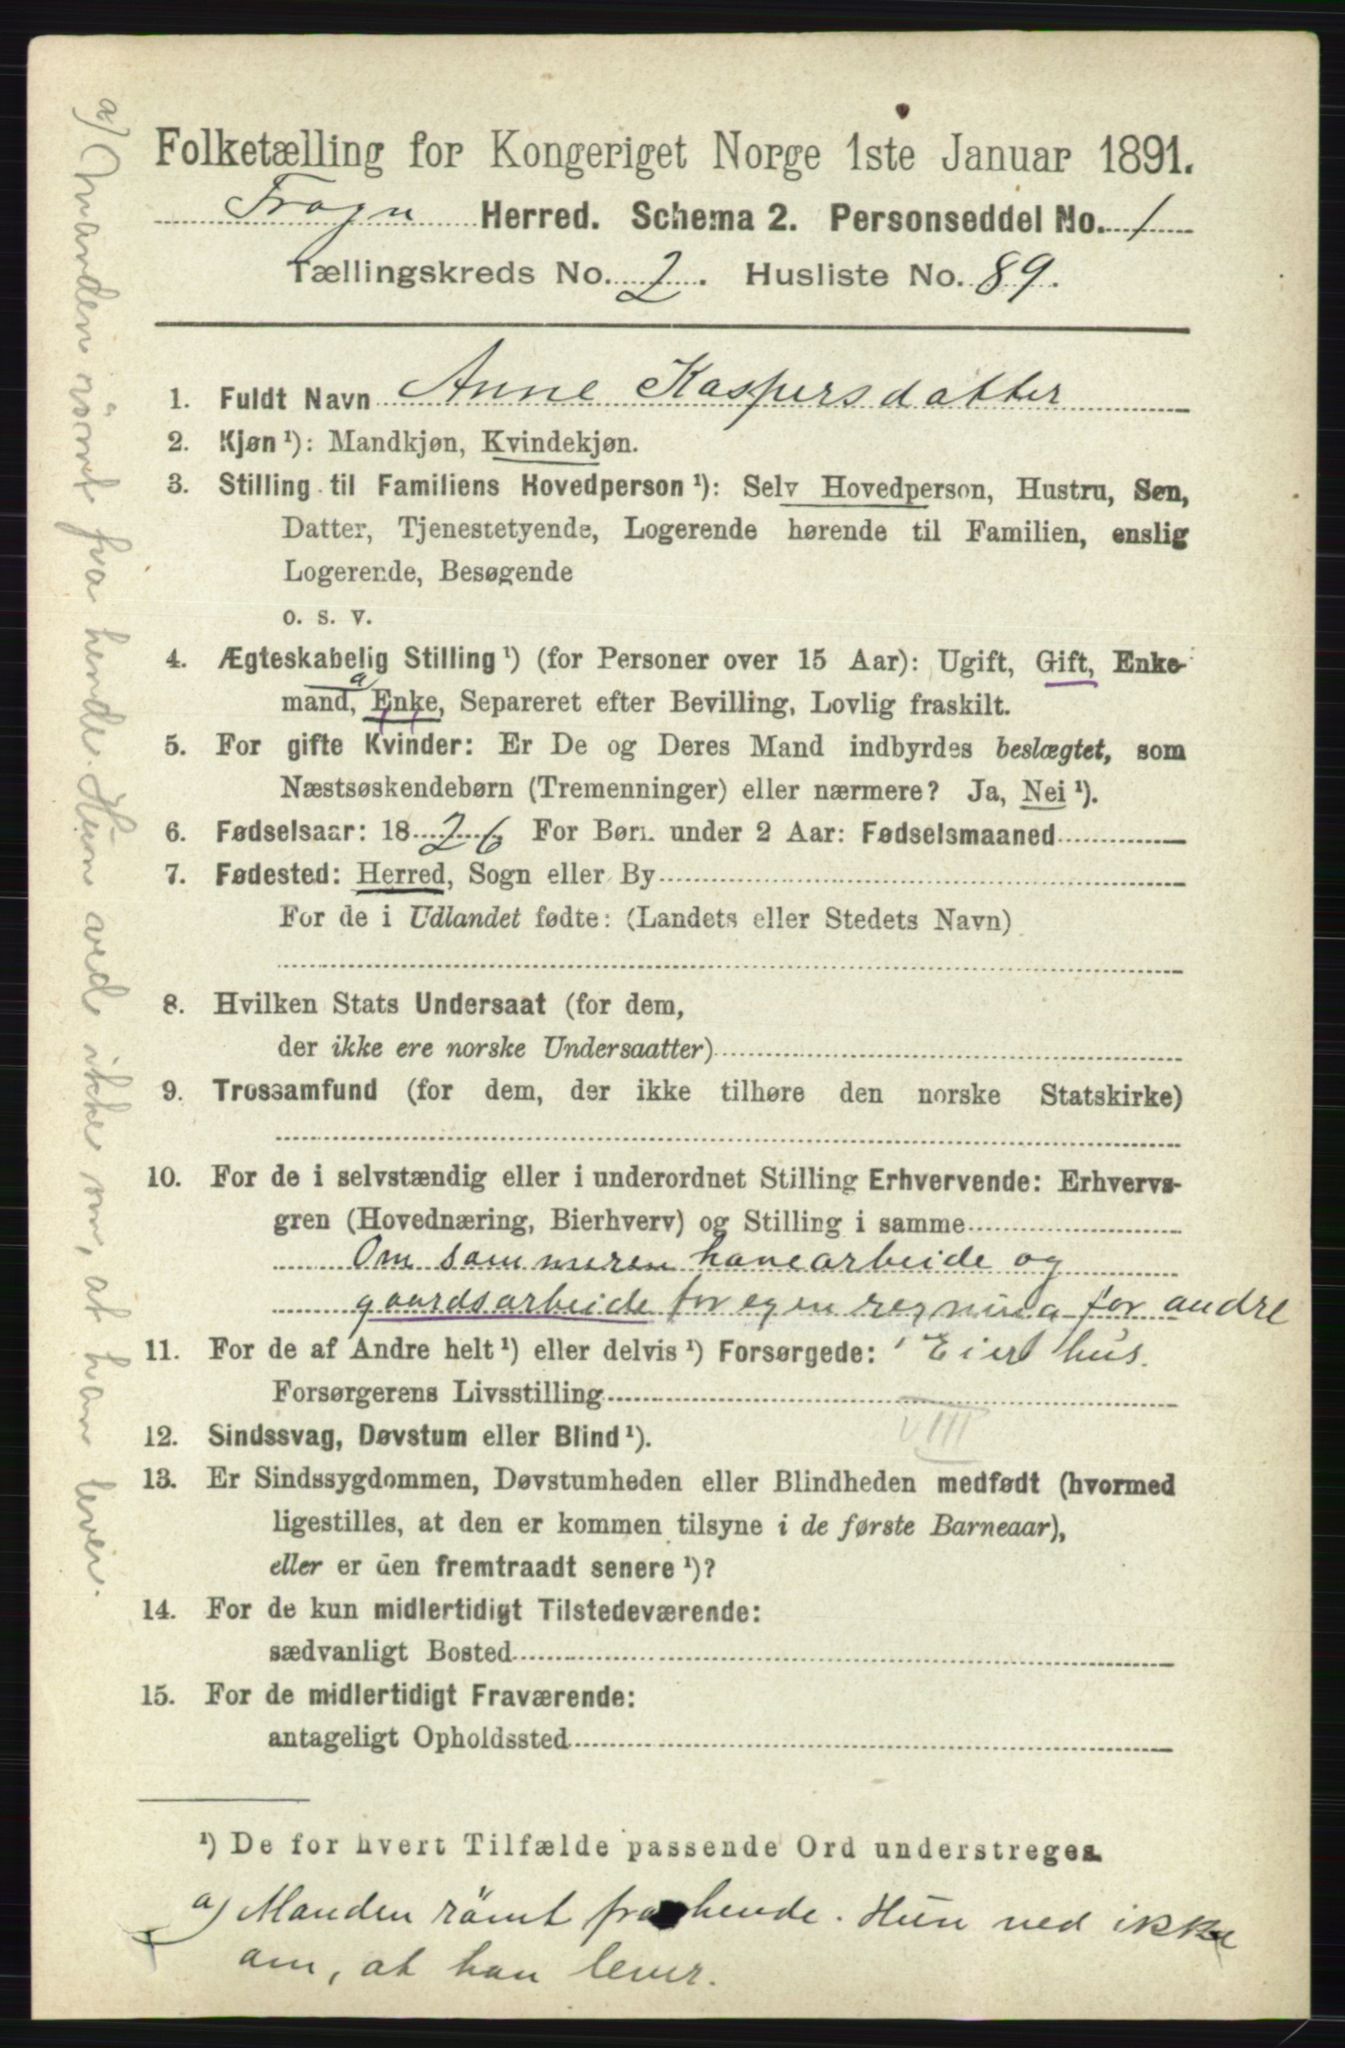 Folketælling for Kongeriget Norge 1ste Januar 1891.
Frogn Herred. Schema 2. Personseddel No. 1
Tællingskreds No. 2. Husliste No. 89.
1. Fuldt Navn Anne Kaspersdatter
2. Kjøn ¹): Mandkjøn, Kvindekjøn.
3. Stilling til Familiens Hovedperson ¹): Selv Hovedperson, Hustru, Søn,
Datter, Tjenestetyende, Logerende hørende til Familien, enslig
Logerende, Besøgende
o. s. v.
4. Ægteskabelig Stilling ¹) (for Personer over 15 Aar): Ugift, Gift, Enke-
a
mand, Enke, Separeret efter Bevilling, Lovlig fraskilt.
5. For gifte Kvinder: Er De og Deres Mand indbyrdes beslægtet, som
Næstsøskendebørn (Tremenninger) eller nærmere? Ja, Nei ¹).
6. Fødselsaar: 1826 For Børn under 2 Aar: Fødselsmaaned
7. Fødested: Herred, Sogn eller By
For de i Udlandet fødte: (Landets eller Stedets Navn)
8. Hvilken Stats Undersaat (for dem,
der ikke ere norske Undersaatter)
9. Trossamfund (for dem, der ikke tilhøre den norske Statskirke)
10. For de i selvstændig eller i underordnet Stilling Erhvervende: Erhvervs-
gren (Hovednæring, Bierhverv) og Stilling i samme
Om sommeren havearbeide og
gaardsarbeide for egen regning for andre
11. For de af Andre helt ¹) eller delvis ¹) Forsørgede: Eier hus.
Forsørgerens Livsstilling
VIII
12. Sindssvag, Døvstum eller Blind ¹).
13. Er Sindssygdommen, Døvstumheden eller Blindheden medfødt (hvormed
ligestilles, at den er kommen tilsyne i de første Barneaar),
eller er den fremtraadt senere ¹)?
14. For de kun midlertidigt Tilstedeværende:
sædvanligt Bosted
15. For de midlertidigt Fraværende:
antageligt Opholdssted
¹) De for hvert Tilfælde passende Ord understreges.
a) Manden römt fra hende. Hun ved ikke
om, at han lever.
a) Manden römt fra hende. Hun ved ikke om, at han lever.